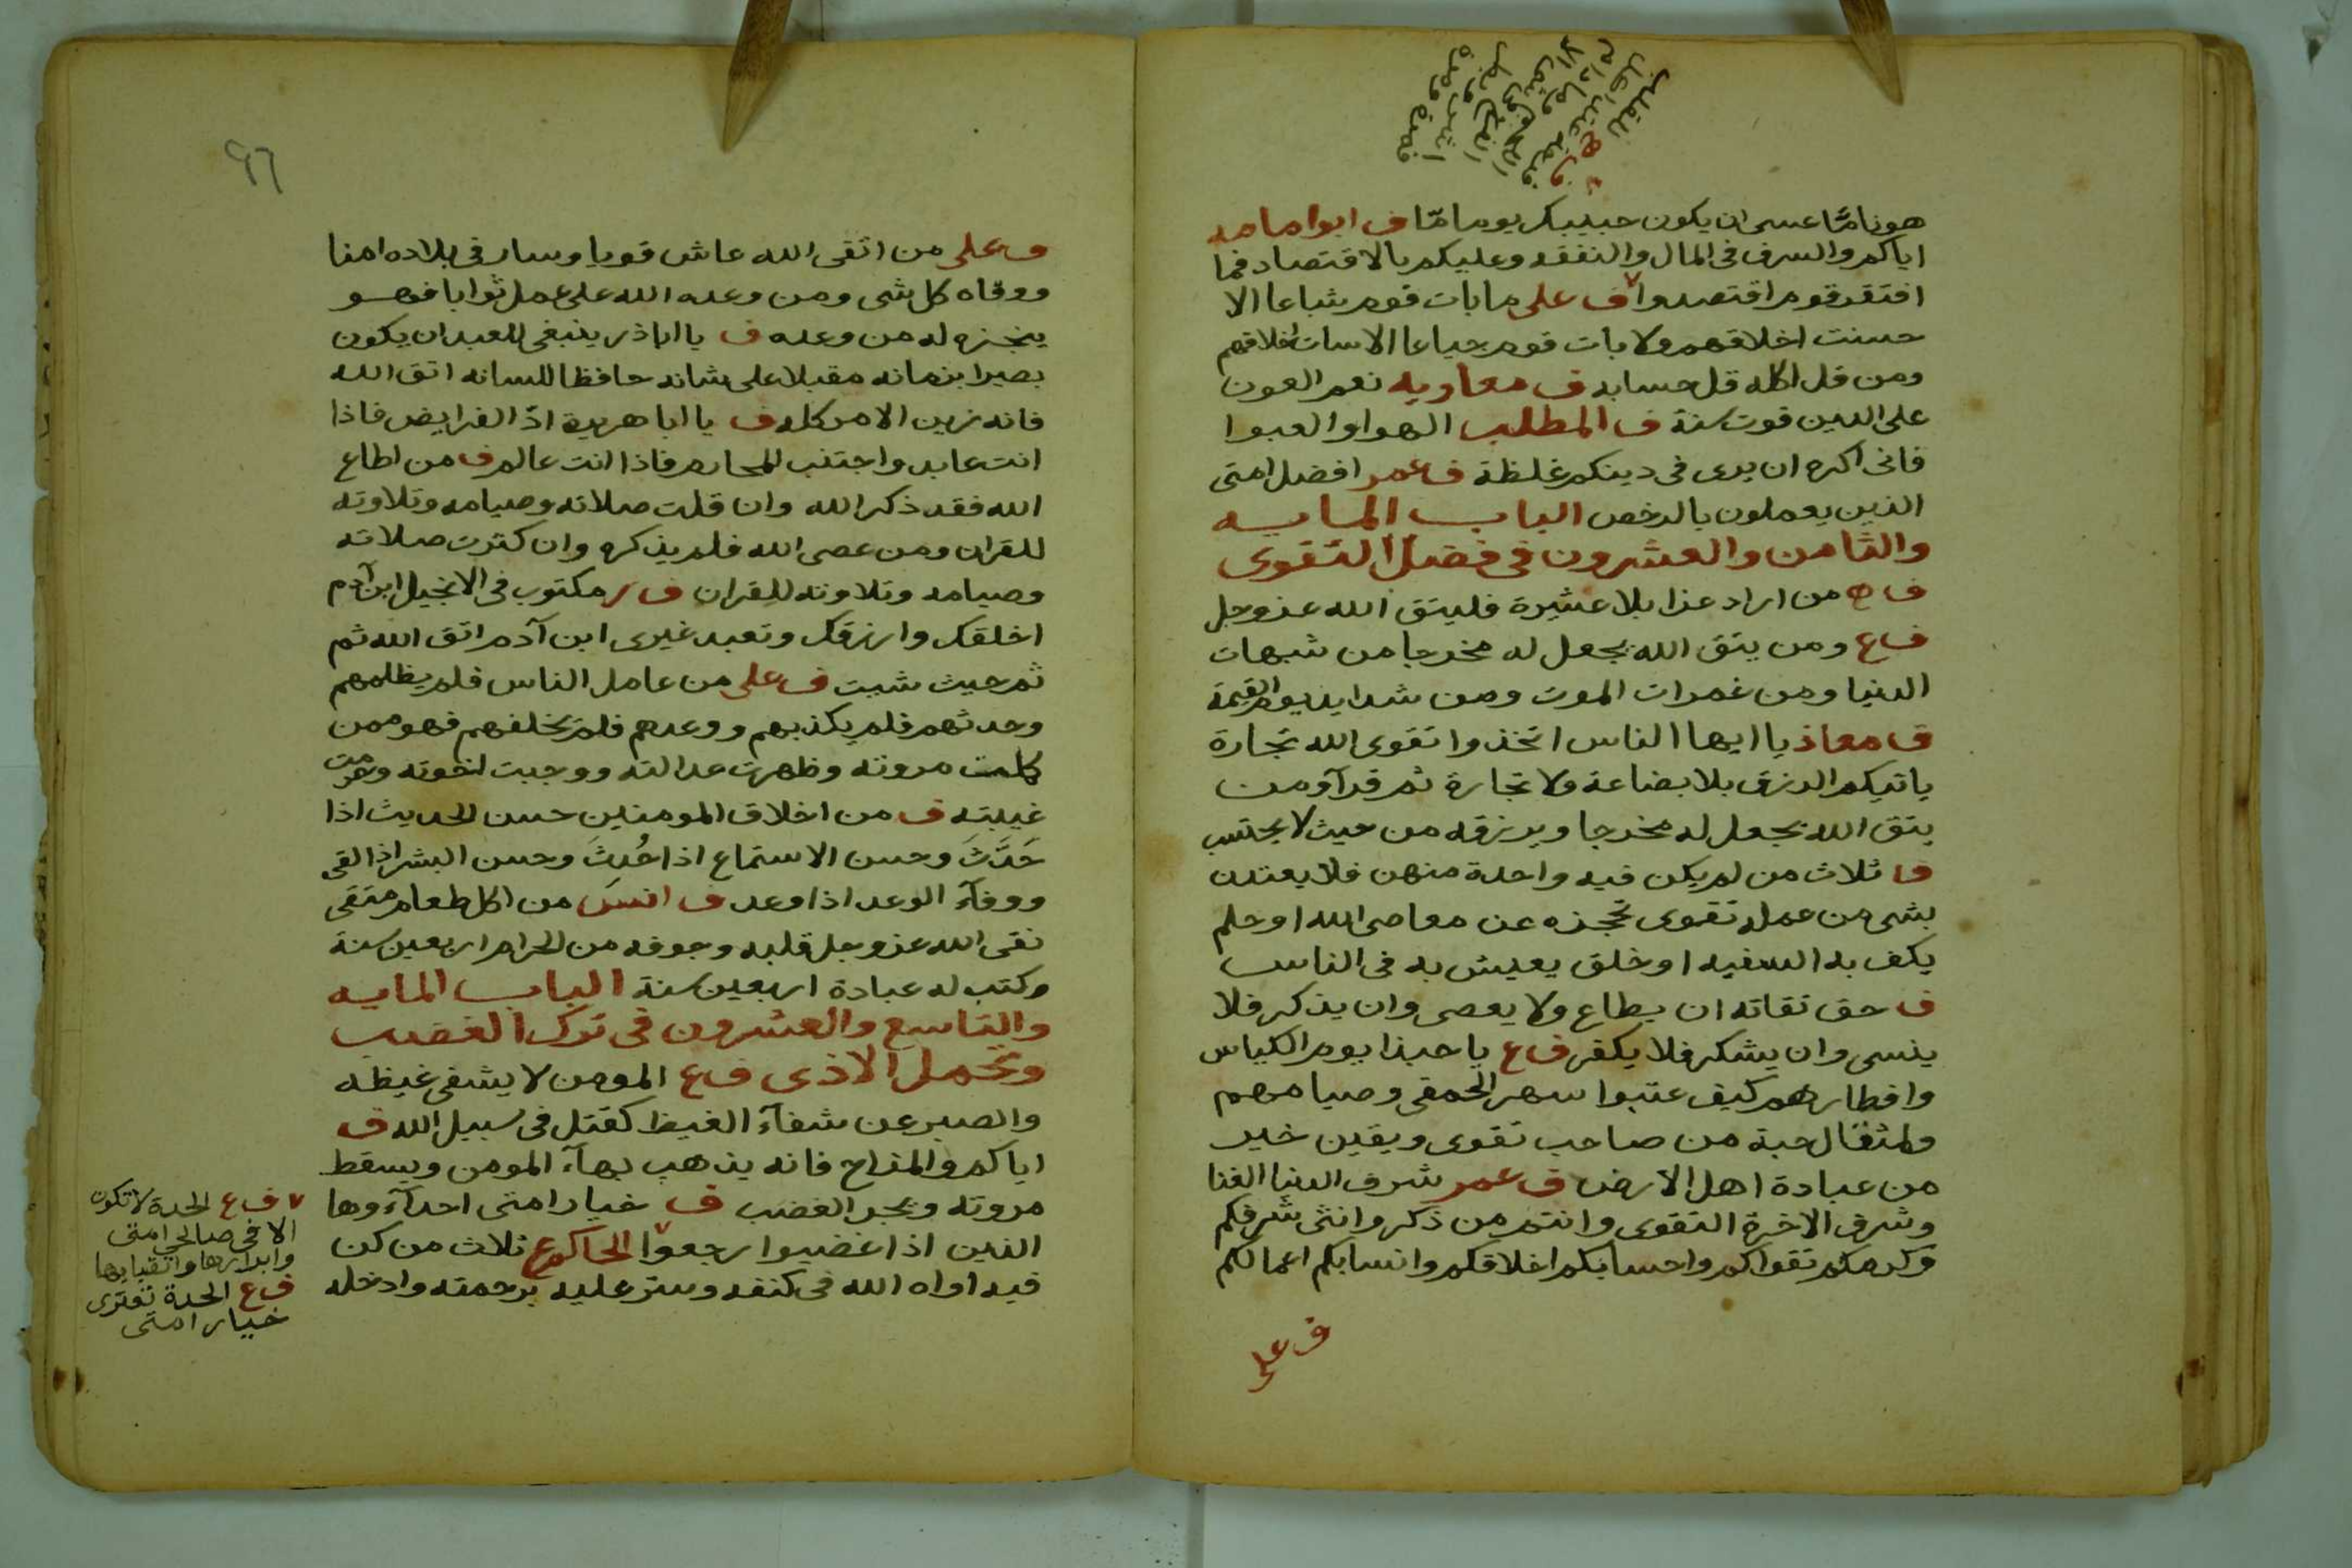 هونا مّا عسى ان يكون حبيبك يوما مّا ف ابو امامه
اياكم والسرف فى المال والنفقه وعليكم بالاقتصاد فما
افتقر قوم اقتصدوا ف على ما بات قوم شباعا الا
حسنت اخلاقهم ولا بات قوم جياعا الا سات اخلاقهم
ومن قل اكله قل حسابه ف معاويه نعم العون
على الدين قوت سنة ف المطلب الهوا والعبوا
فانى اكره ان يرى فى دينكم غلظة ف عمر افضل امتى
الذين يعملون بالرخص الباب المايه
والثامن والعشرون فى فضل التقوى
ف ح من اراد عزا بلا عشيرة فليتق الله عز وجل
ف ع ومن يتق الله يجعل له مخرجا من شبهات
الدنيا ومن غمرات الموت ومن شدايد يوم القيمة
ف معاذ يا ايها الناس اتخذوا تقوى الله تجارة
ياتيكم الرزق بلا بضاعة ولا تجارة ثم قرآ ومن
يتق الله يجعل له مخرجا ويرزقه من حيث لا يحتسب
ف ثلاث من لم يكن فيه واحدة منهن فلا يعتدن
بشى من عمله تقوى تحجزه عن معاصى الله او حلم
يكف به السفيه او خلق يعيش به فى الناس
ف حق تقاته ان يطاع ولا يعصى وان يذكر فلا
ينسى وان يشكر فلا يكفر ف ع يا حبذا يوم الكياس
وافطارهم كيف عتبوا سهر الحمقى وصيامهم
ولمثقال حبة من صاحب تقوى ويقين خير
من عبادة اهل الارض ف عمر شرف الدنيا الغنا
وشرف الاخرة التقوى وانتم من ذكر وانثى شرفكم
وكرمكم تقواكم واحسابكم اخلاقكم وانسابكم اعمالكم
ف على
٩٦
ف على من اتقى الله عاش قويا وسار فى بلاده امنا
ووقاه كل شى ومن وعده الله على عمل ثوابا فهو
ينجزه له من وعده ف يا اباذر ينبغى للعبد ان يكون
بصيرا بزمانه مقبلا على شانه حافظا للسانه اتق الله
فانه زين الامر كله ف يا ابا هريرة ادّ الفرايض فاذا
انت عابد واجتنب المحارم فاذا انت عالم ف من اطاع
الله فقد ذكر الله وان قلت صلاته وصيامه وتلاوته
للقران ومن عصى الله فلم يذكره وان كثرت صلاته
وصيامه وتلاوته للقران ف ر مكتوب فى الانجيل ابن آدم
اخلقك وارزقك وتعبد غيرى ابن آدم اتق الله ثم
ثم حيث شيت ف على من عامل الناس فلم يظلمهم
وحدثهم فلم يكذبهم ووعدهم فلم يخلفهم فهو ممن
كلمت مروته وظهرت عدالته ووجبت اخوته وحرمت
غيبته ف من اخلاق المومنين حسن الحديث اذا
حَدَّثَ وحسن الاستماع اذا حُدثَ وحسن البشر اذا لقى
ووفآء الوعد اذا وعد ف انس من اكل طعام متقى
نقى الله عز وجل قلبه وجوفه من الحرام اربعين سنة
وكتب له عبادة اربعين سنة الباب المايه
والتاسع والعشرون فى ترك الغضب
وتحمل الاذى ف ع المومن لا يشفى غيظه
والصبر عن شفآء الغيظ كقتل فى سبيل الله ف
اياكم والمزاح فانه يذهب بهآء المومن ويسقط
مروته ويجر الغضب ف خيار امتى احدآوها
الذين اذا غضبوا رجعوا الحاكم ع ثلاث من كن
فيه اواه الله فى كنفه وستر عليه برحمته وادخله
ف ع الحدة لا تكون
الا فى صالحى امتى
وابرارها واتقيايها
ف ع الحدة تعترى
خيار امتى